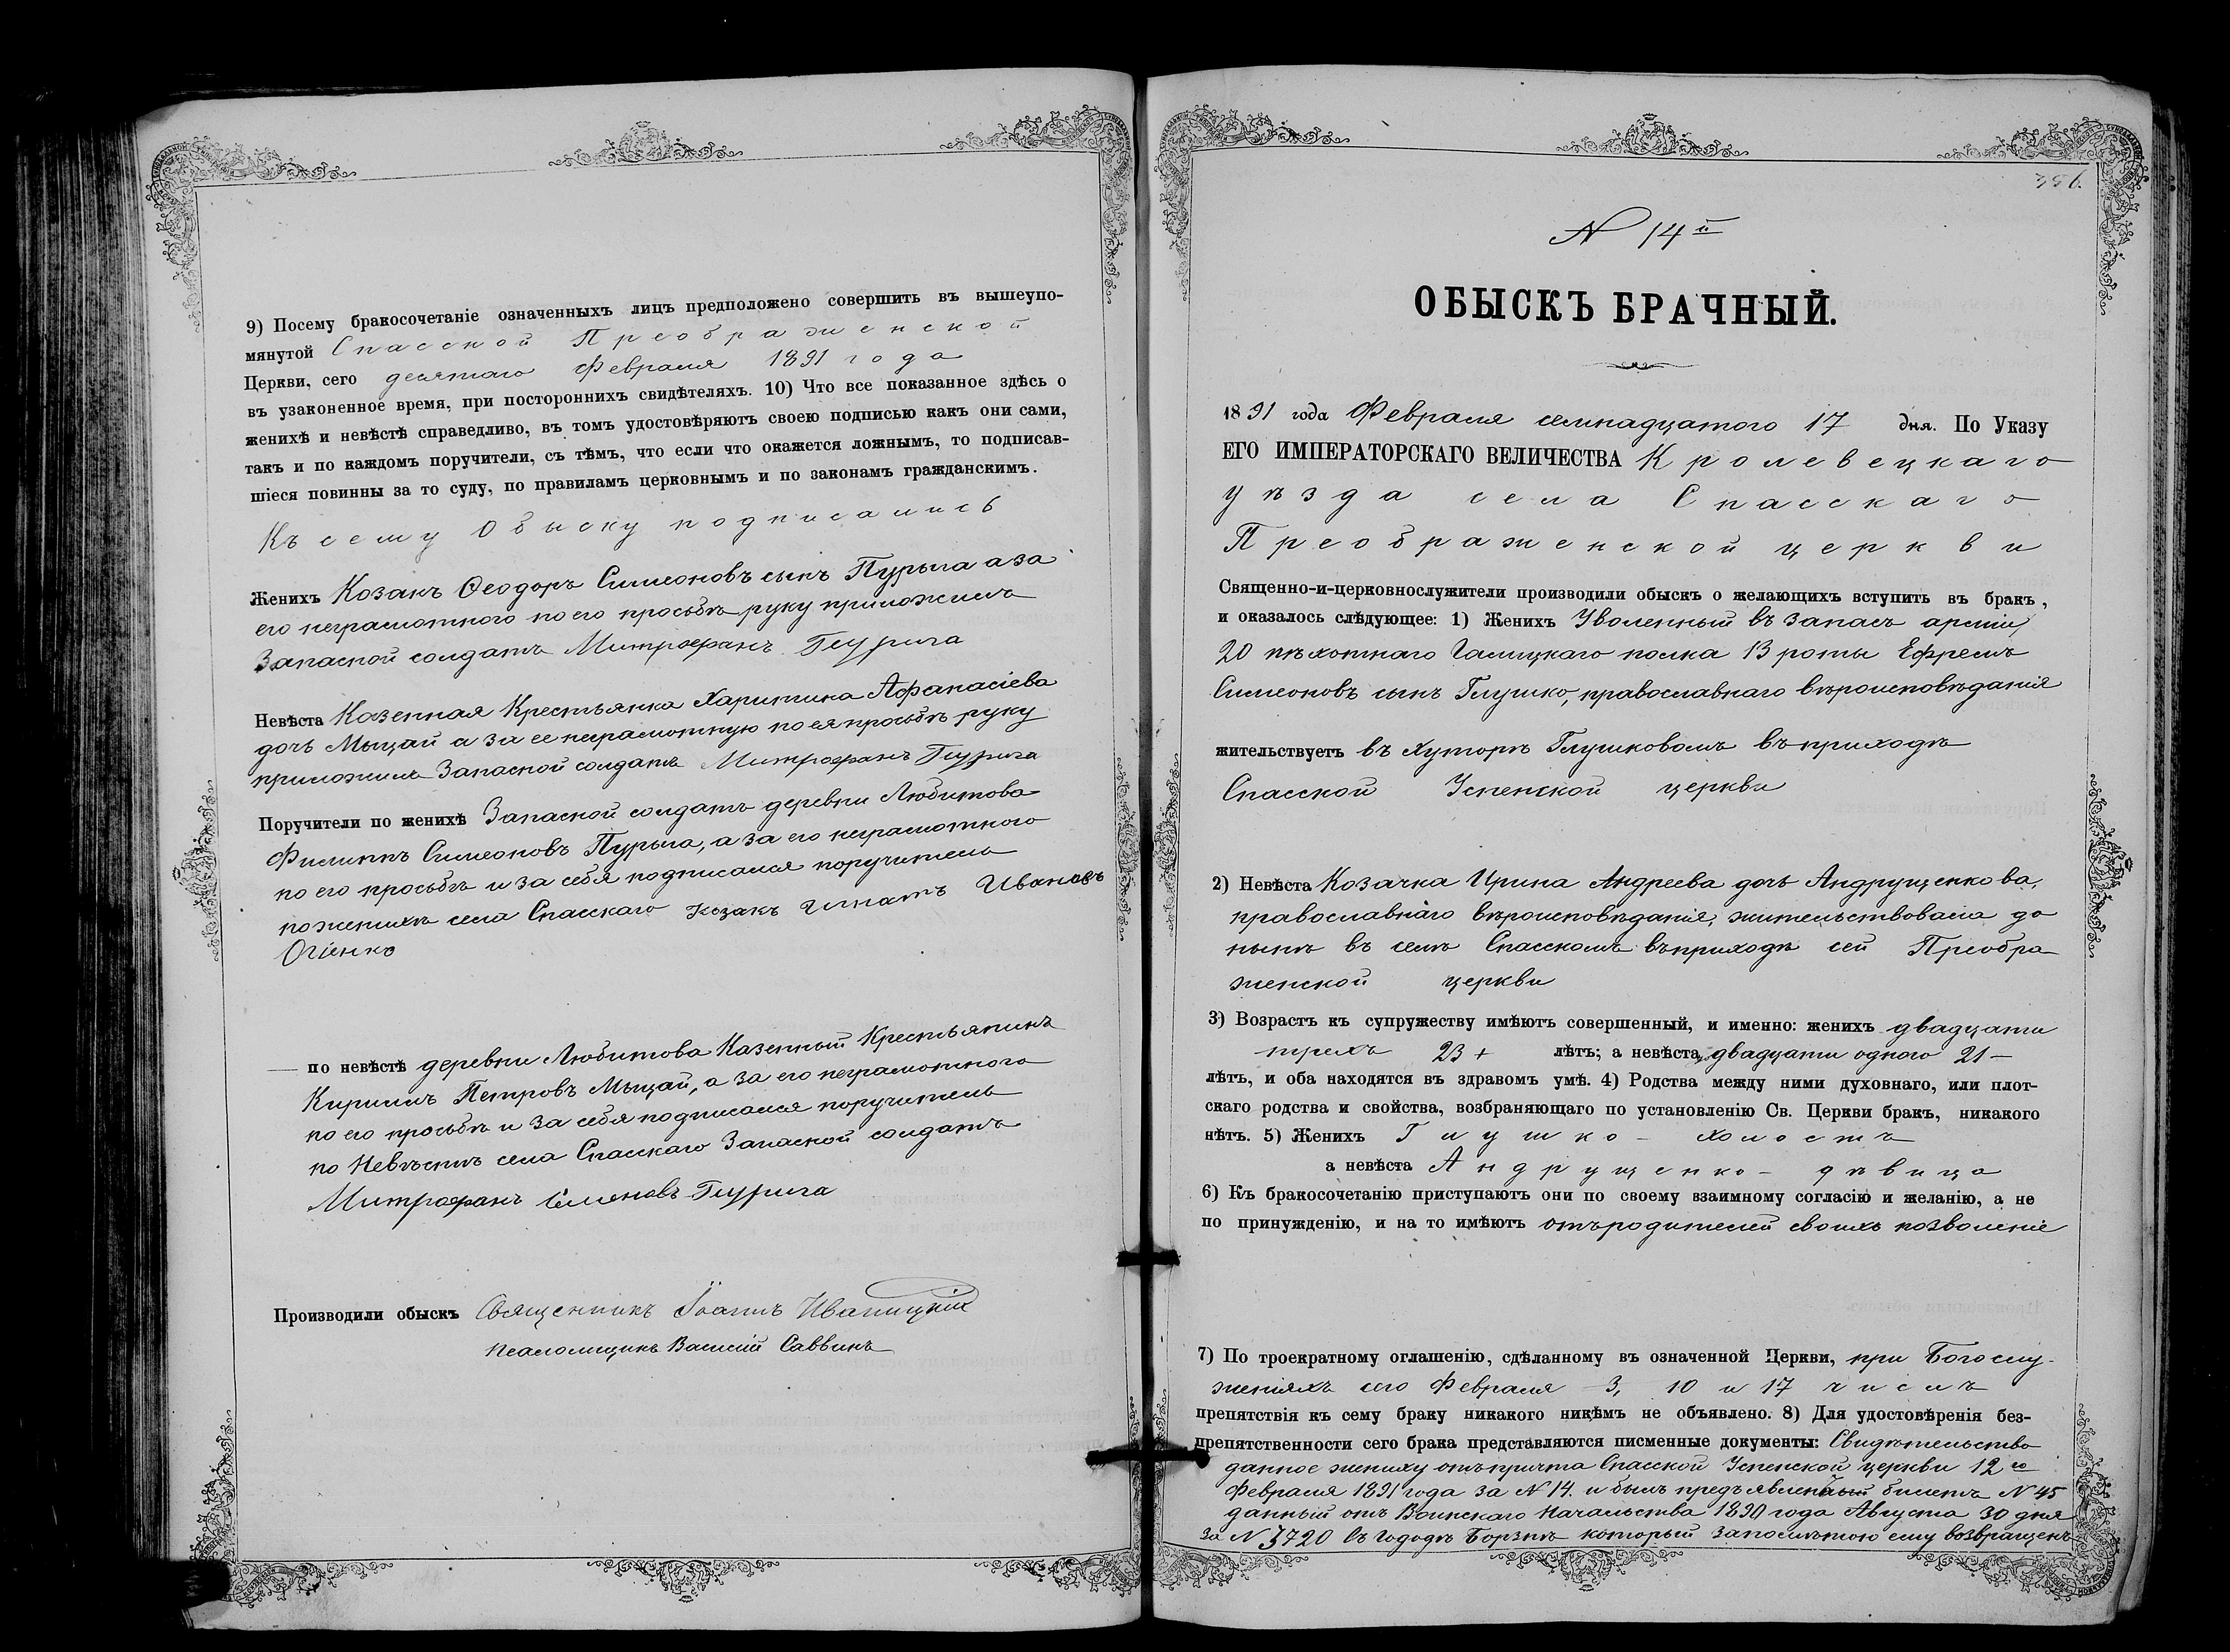 9) Посему бракосочетаніе означенныхъ лицъ предположено совершить въ вышеупо-
мянутой Спасской Преображенской
Церкви, сего десятаго Февраля 1891 года
въ узаконенное время, при постороннихъ свидѣтеляхъ. 10) Что все показанное здѣсь о
женихѣ и невѣстѣ справедливо, въ томъ удостовѣряютъ своею подписью какъ они сами,
такъ и по каждомъ поручители, съ тѣмъ, что если что окажется ложнымъ, то подписав-
шіеся повинны за то суду, по правиламъ церковнымъ и по законамъ гражданскимъ.
Къ сему Обыску подписались
Женихъ Козакъ Ѳеодоръ Симеоновъ сынъ Пурыга а за
его неграмотного по его просьбѣ руку приложилъ
Запасной солдатъ Митрофанъ
Невѣста Казенная Крестьянка Харитина Афанасіева
дочь Мыцай а за ее неграмотную по ея просьбѣ руку
приложилъ Запасной солдатъ Митрофанъ
Поручители по женихѣ Запасной солдатъ деревни Любитова
Филиппъ Симеоновъ Пурыга, а за его неграмотного
по его просьбѣ и за себя подписался поручитель
по женихѣ села Спасскаго козакъ Игнатъ Ивановъ
Огіенко
— по невѣстѣ деревни Любитова Казенный Крестьянинъ
Кириллъ Петровъ Мыцай, а за его неграмотного
по его просьбѣ и за себя подписался поручитель
по Невѣстѣ села Спасскаго Запасной солдатъ
Митрофанъ Семеновъ
Производили обыскъ Священникъ Іоаннъ Иваницкій
Псаломщикъ Василій Саввинъ
356.
N 14й
ОБЫСКЪ БРАЧНЫЙ.
1891 года Февраля семнадцатого 17 дня. По Указу
ЕГО ИМПЕРАТОРСКАГО ВЕЛИЧЕСТВА Кролевецкаго
уѣзда села Спасскаго
Преображенской церкви
Священно-и-церковнослужители производили обыскъ о желающихъ вступить въ бракъ,
и оказалось слѣдующее: 1) Женихъ Уволенный въ запасъ арміи
20 пѣхотнаго Галицкаго полка 13 роты Ефремъ
Симеоновъ сынъ Глушко, православнаго вѣроисповѣданія
жительствуетъ въ хуторѣ Глушковомъ въ приходѣ
Спасской Успенской церкви
2) Невѣста Козачка Ирина Андреева дочь Андрущенкова,
православнаго вѣроисповѣданія, жительствовала до
нынѣ въ селѣ Спасскомъ въ приходѣ сей Преобра
женской церкви
3) Возрастъ къ супружеству имѣютъ совершенный, и именно: женихъ двадцати
трехъ 23 + лѣтъ; а невѣста двадцати одного 21 —
лѣтъ, и оба находятся въ здравомъ умѣ. 4) Родства между ними духовнаго, или плот-
скаго родства и свойства, возбраняющаго по установленію Св. Церкви бракъ, никакого
нѣтъ. 5) Женихъ Глушко — холостъ
а невѣста Андрущенко — дѣвица
6) Къ бракосочетанію приступаютъ они по своему взаимному согласію и желанію, а не
по принужденію, и на то имѣютъ отъ родителей своихъ позволеніе
7) По троекратному оглашенію, сдѣланному въ означенной Церкви, при Богослу-
женіяхъ сего Февраля 3, 10 и 17 числъ
препятствія къ сему браку никакого никѣмъ не объявлено. 8) Для удостовѣренія без-
препятственности сего брака представляются писменные документы: Свидѣтельство
данное жениху отъ причта Спасской Успенской церкви 12го
Февраля 1891 года за N 14. и былъ предъявленный билетъ N 45
данный отъ Воинскаго Начальства 1890 года Августа 30 дня
за N 3720 въ Городѣ Борзнѣ который ему возвращенъ